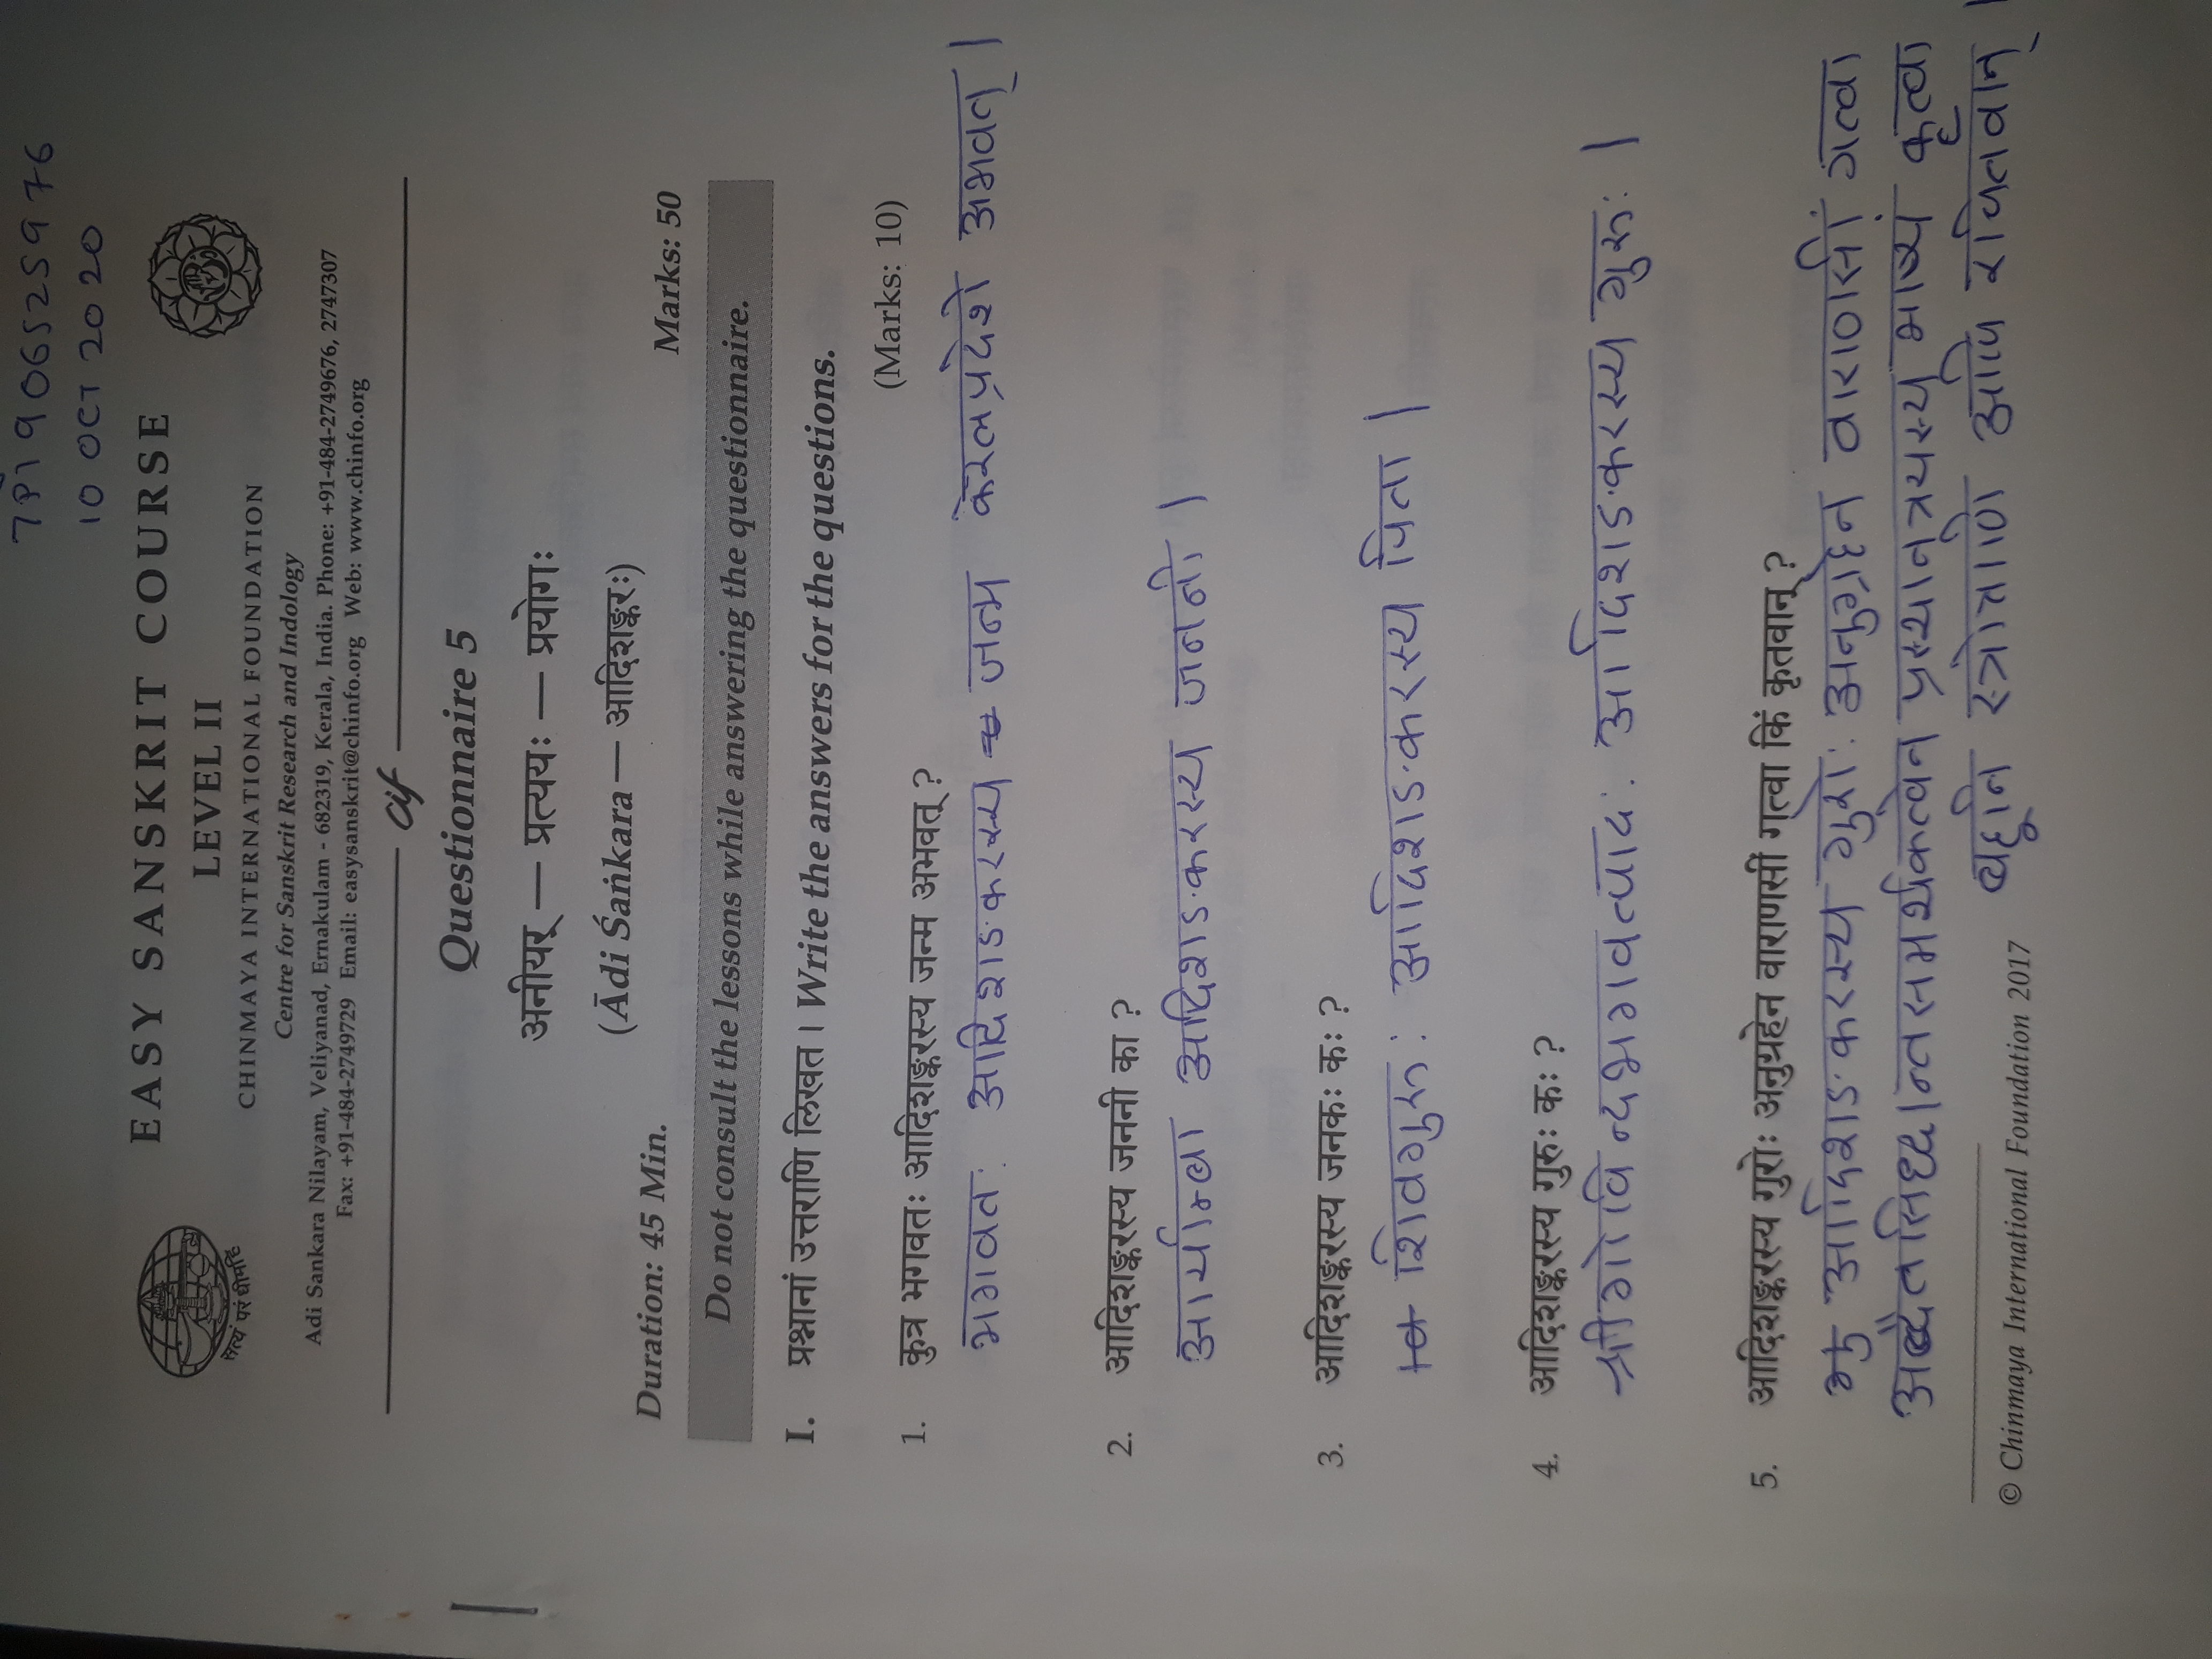 7P1906525976
10 OCT 2020
EASY SANSKRIT COURSE
LEVEL II
CHINMAYA INTERNATIONAL FOUNDATION
Centre for Sanskrit Research and Indology
Adi Sankara Nilayam, Veliyanad, Ernakulam - 682319, Kerala, India. Phone: +91-484-2749676, 2747307
Fax: +91-484-2749729 Email: easysanskrit@chinfo.org Web: www.chinfo.org
सत्यं परं धीमहि
cif
Questionnaire 5
अनीयर् — प्रत्ययः — प्रयोगः
(Ādi Śaṅkara — आदिशङ्करः)
Duration: 45 Min. Marks: 50
Do not consult the lessons while answering the questionnaire.
I. प्रश्नानां उत्तराणि लिखत । Write the answers for the questions.
(Marks: 10)
1. कुत्र भगवतः आदिशङ्करस्य जन्म अभवत् ?
भगवतः आदिशङ्करस्य जन्म केरलप्रदेशे अभवत् ।
2. आदिशङ्करस्य जननी का ?
आर्याम्बा आदिशङ्करस्य जननी ।
3. आदिशङ्करस्य जनकः कः ?
शिवगुरुः आदिशङ्करस्य पिता ।
4. आदिशङ्करस्य गुरुः कः ?
श्रीगोविन्दभगवत्पादः आदिशङ्करस्य गुरुः ।
5. आदिशङ्करस्य गुरोः अनुग्रहेन वाराणसीं गत्वा किं कृतवान् ?
आदिशङ्करस्य गुरोः अनुग्रहेन वाराणसीं गत्वा
अद्वैतसिद्धान्तसमर्थकत्वेन प्रस्थानत्रयस्य भाष्यं कृत्वा
बहूनि स्त्रोत्राणि अपि रचितवान् ।
© Chinmaya International Foundation 2017